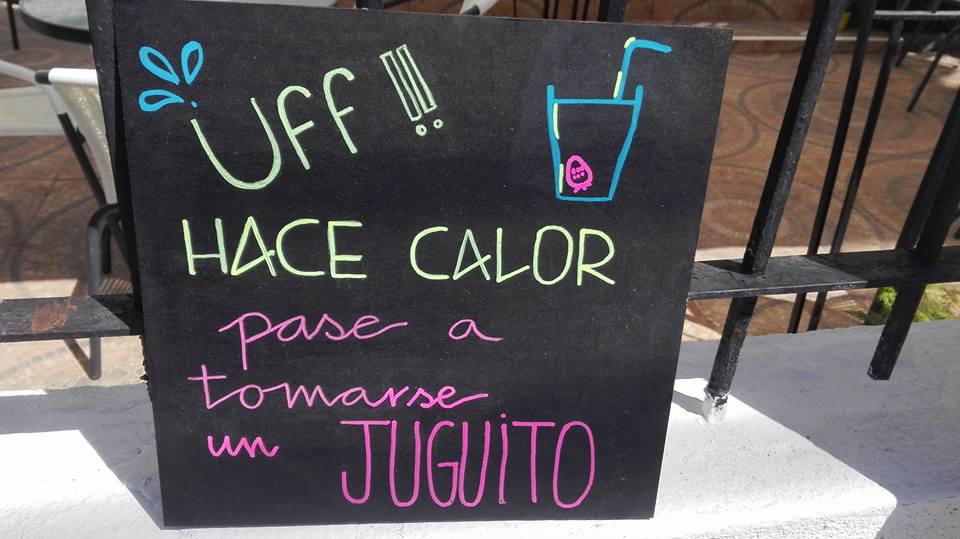 UFF!!
HACE CALOR
pase a
tomarse
un JUGUiTO